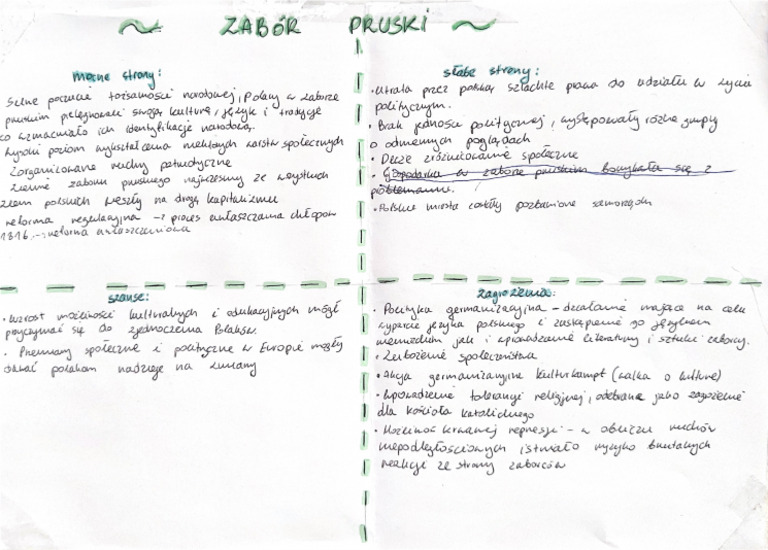 ~ ZABÓR PRUSKI ~
mocne strony:
silne poczucie tożsamości narodowej, Polacy w zaborze
pruskim pielęgnowali swoją kulturę, język i tradycje
co wzmacniało ich identyfikację narodową.
wysoki poziom wykształcenia niektórych warstw społecznych
zorganizowane ruchy patriotyczne
ziemie zaboru pruskiego najwcześniej ze wszystkich
ziem polskich weszły na drogę kapitalizmu
reforma regulacyjna → proces uwłaszczania chłopów
1816 → reforma uwłaszczeniowa
słabe strony:
• utrata przez polską szlachtę prawa do udziału w życiu
politycznym.
• Brak jedności politycznej, występowały różne grupy
o odmiennych poglądach
• Duże zróżnicowanie społeczne
• Gospodarka w zaborze pruskim borykała się z
problemami.
• Polskie miasta zostały pozbawione samorządu
szanse:
• wzrost możliwości kulturalnych i edukacyjnych mógł
przyczynić się do zjednoczenia Polaków.
• Przemiany społeczne i polityczne w Europie mogły
dawać polakom nadzieję na zmiany
zagrożenia:
• Polityka germanizacyjna – działania mające na celu
wyparcie języka polskiego i zastąpienie go językiem
niemieckim jak i wprowadzanie literatury i sztuki zaborcy.
• Zubożenie społeczeństwa
• Akcja germanizacyjna kulturkampf (walka o kulturę)
• wprowadzenie tolerancji religijnej, odebrane jako zagrożenie
dla kościoła katolickiego
• Możliwość krwawej represji – w obliczu ruchów
niepodległościowych istniało ryzyko brutalnych
reakcji ze strony zaborców